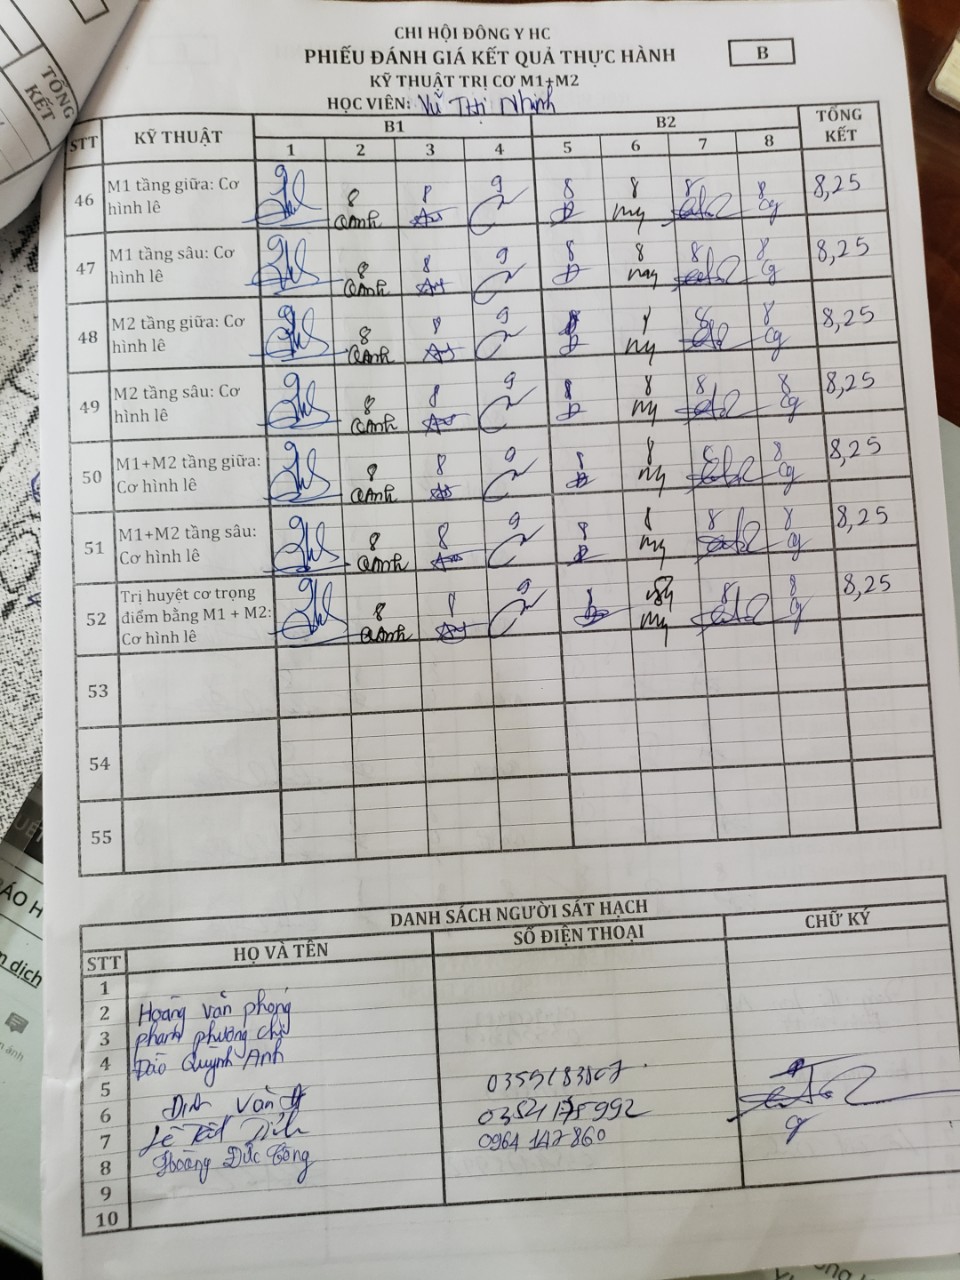 CHI HỘI ĐÔNG Y HC
PHIẾU ĐÁNH GIÁ KẾT QUẢ THỰC HÀNH
B
KỸ THUẬT TRỊ CƠ M1+M2
HỌC VIÊN: Vũ Thị Nhịnh
TỔNG KẾT
STT KỸ THUẬT B1 B2 TỔNG KẾT
1 2 3 4 5 6 7 8
46 M1 tầng giữa: Cơ hình lê 9 8 8 9 8 8 8 8 8,25
QAnh my Cg
47 M1 tầng sâu: Cơ hình lê 9 8 8 9 8 8 8 8 8,25
QAnh my Cg
48 M2 tầng giữa: Cơ hình lê 9 8 8 9 8 8 8 8 8,25
QAnh my Cg
49 M2 tầng sâu: Cơ hình lê 9 8 8 9 8 8 8 8 8,25
QAnh my Cg
50 M1+M2 tầng giữa: Cơ hình lê 9 8 8 9 8 8 8 8 8,25
QAnh my Cg
51 M1+M2 tầng sâu: Cơ hình lê 9 8 8 9 8 8 8 8 8,25
QAnh my Cg
52 Trị huyệt cơ trọng điểm bằng M1 + M2: Cơ hình lê 9 8 8 9 8 8 8 8,25
QAnh my Cg
53
54
55
DANH SÁCH NGƯỜI SÁT HẠCH
STT HỌ VÀ TÊN SỐ ĐIỆN THOẠI CHỮ KÝ
1
2 Hoàng Văn Phong
3 Phạm Phương Chi
4 Đào Quỳnh Anh
5 Đinh Văn
6 Lê 0354175992
7 Hoàng Đức Công 0964 142 860
8
9
10